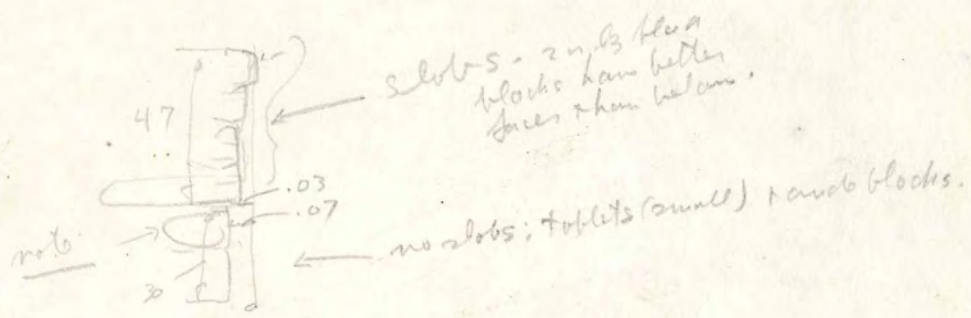 slabs.
blocks have better
faces than below.
47
.03
.07
note
no slabs; tablets (small) + and blocks.
30